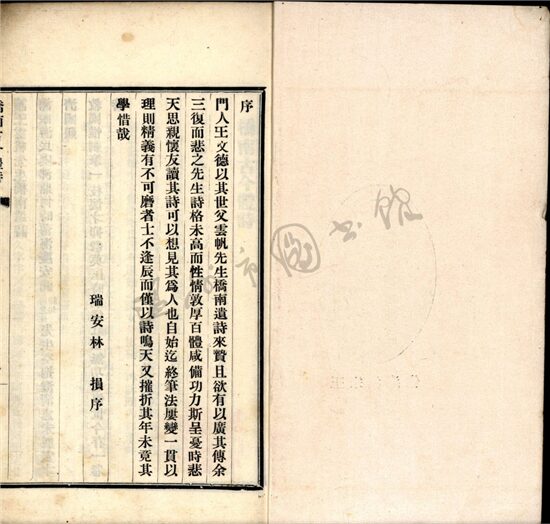 序
門人王文德以其世父雲帆先生橋南遺詩來贄且欲有以廣其傳余
三復而悲之先生詩格未高而性情敦厚百體咸備功力斯呈憂時悲
天思親懷友讀其詩可以想見其爲人也自始迄終筆法屢變一貫以
理則精義有不可磨者士不逢辰而僅以詩鳴天又摧折其年未竟其
學惜哉
瑞安林損序